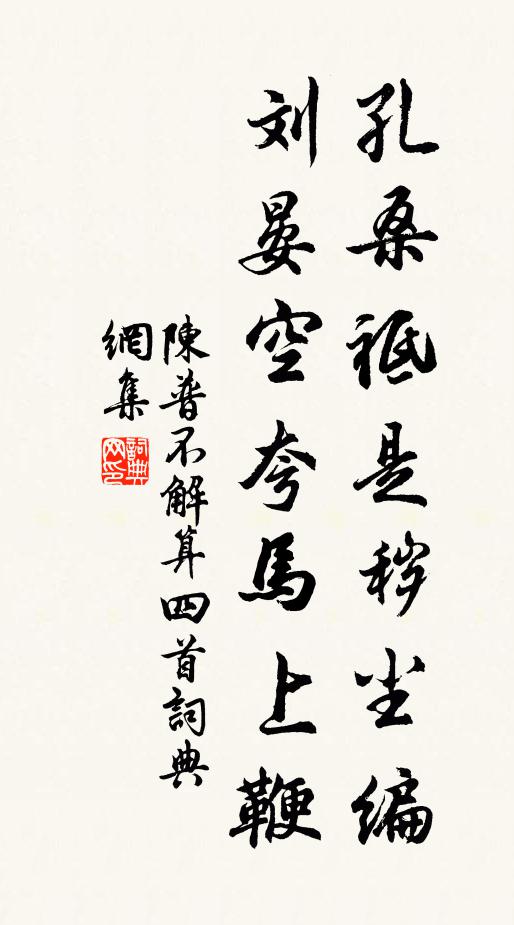 孔桑祗是秽尘编
刘晏空夸馬上鞭
陳普不解算四首詞典
網集
詞典网印